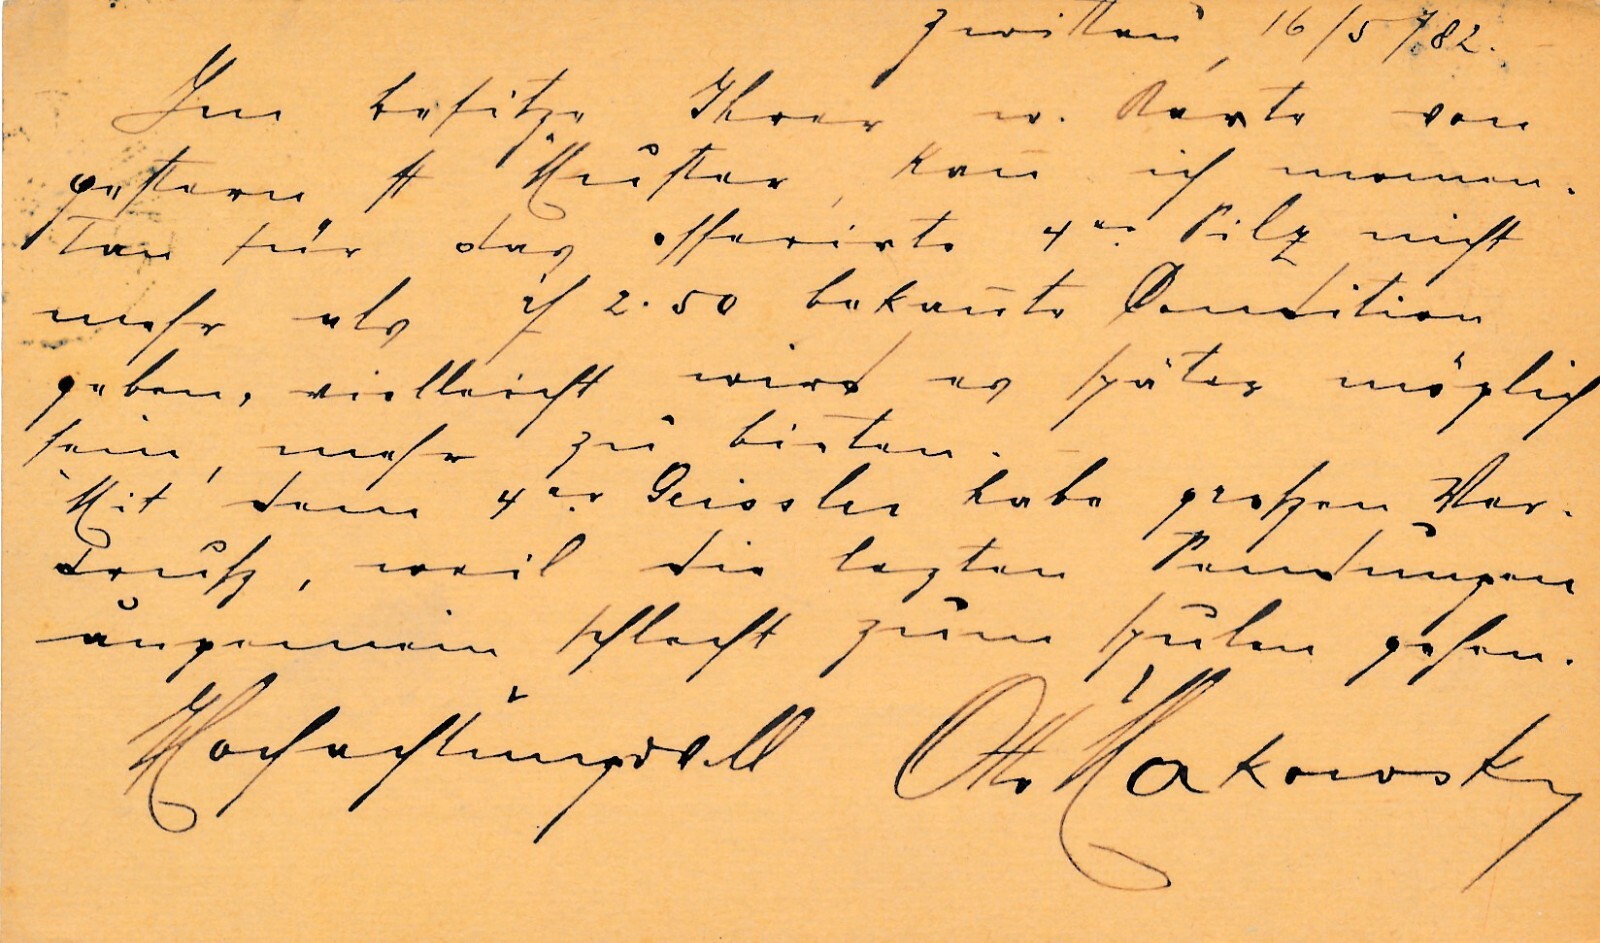 Zwittau, 16/5 782.
Im besitze Ihrer w. Karte von
gestern & Muster, kan̄ ich momen-
tan für das offerirte 4er Pilz nicht
mehr als f 2.50 bekan̄te Condition
geben, vielleicht wird es später möglich
sein, mehr zu bieten.
Mit dem 4er Geissler habe großen Ver-
druß, weil die lezten Sendungen
ungemein schlecht zum spulen gehen.
Hochachtungsvoll Otto Makowsky